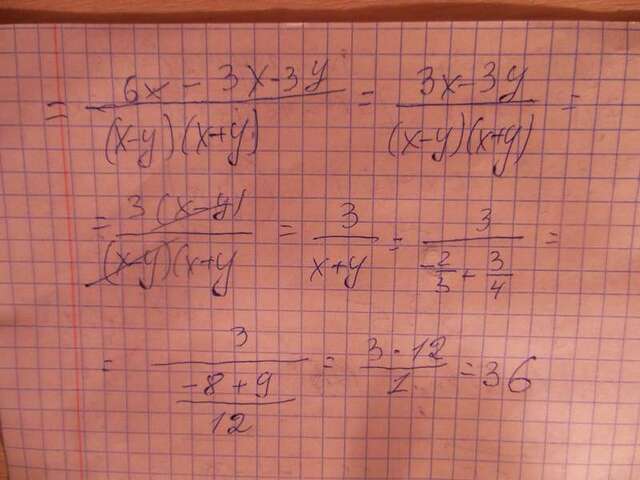 = (6x - 3x - 3y)/((x-y)(x+y)) = (3x - 3y)/((x-y)(x+y)) =
= 3(x-y)/((x-y)(x+y) = 3/(x+y) = 3/(-2/3 + 3/4) =
= 3/((-8+9)/12) = (3·12)/1 = 36